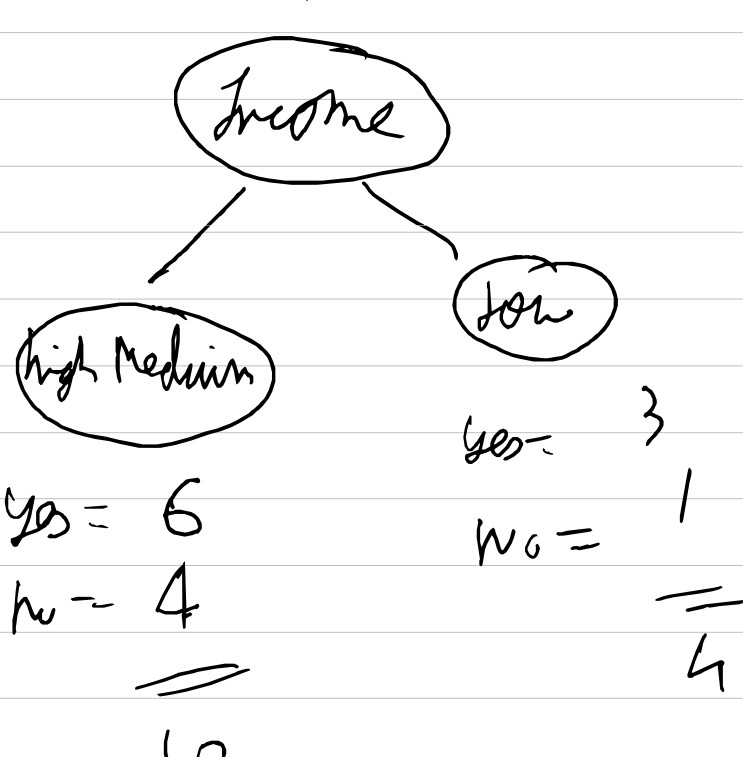 Income
high Medium
low
yes = 6
no = 4
10
yes = 3
no = 1
4